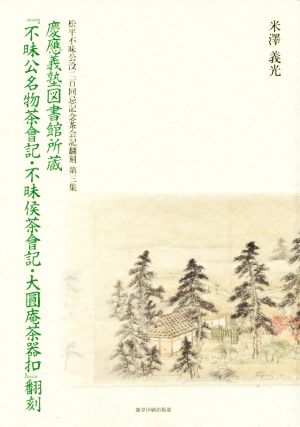 米澤 義光
松平不昧公没二百回忌記念茶会記翻刻 第三集
慶應義塾図書館所蔵
『不昧公名物茶會記・不昧侯茶會記・大圓庵茶器扣』翻刻
能登印刷出版部